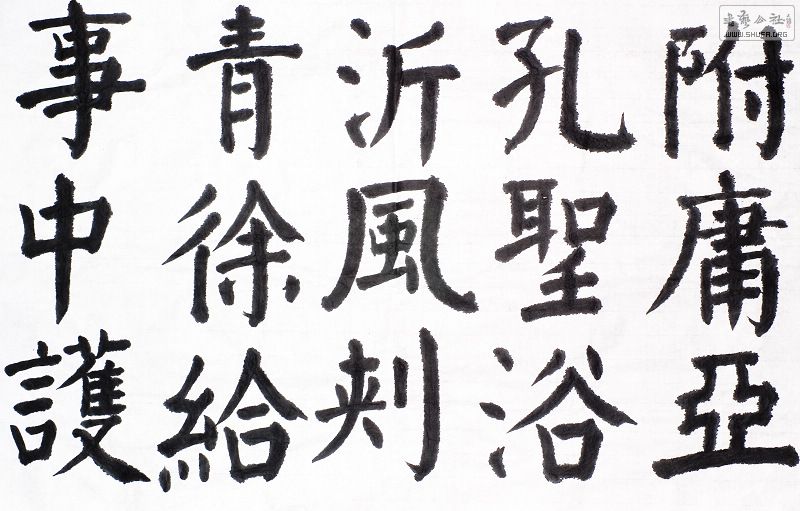 附庸亞
孔聖浴
沂風刾
青徐給
事中護
書藝公社
WWW.SHUFA.ORG